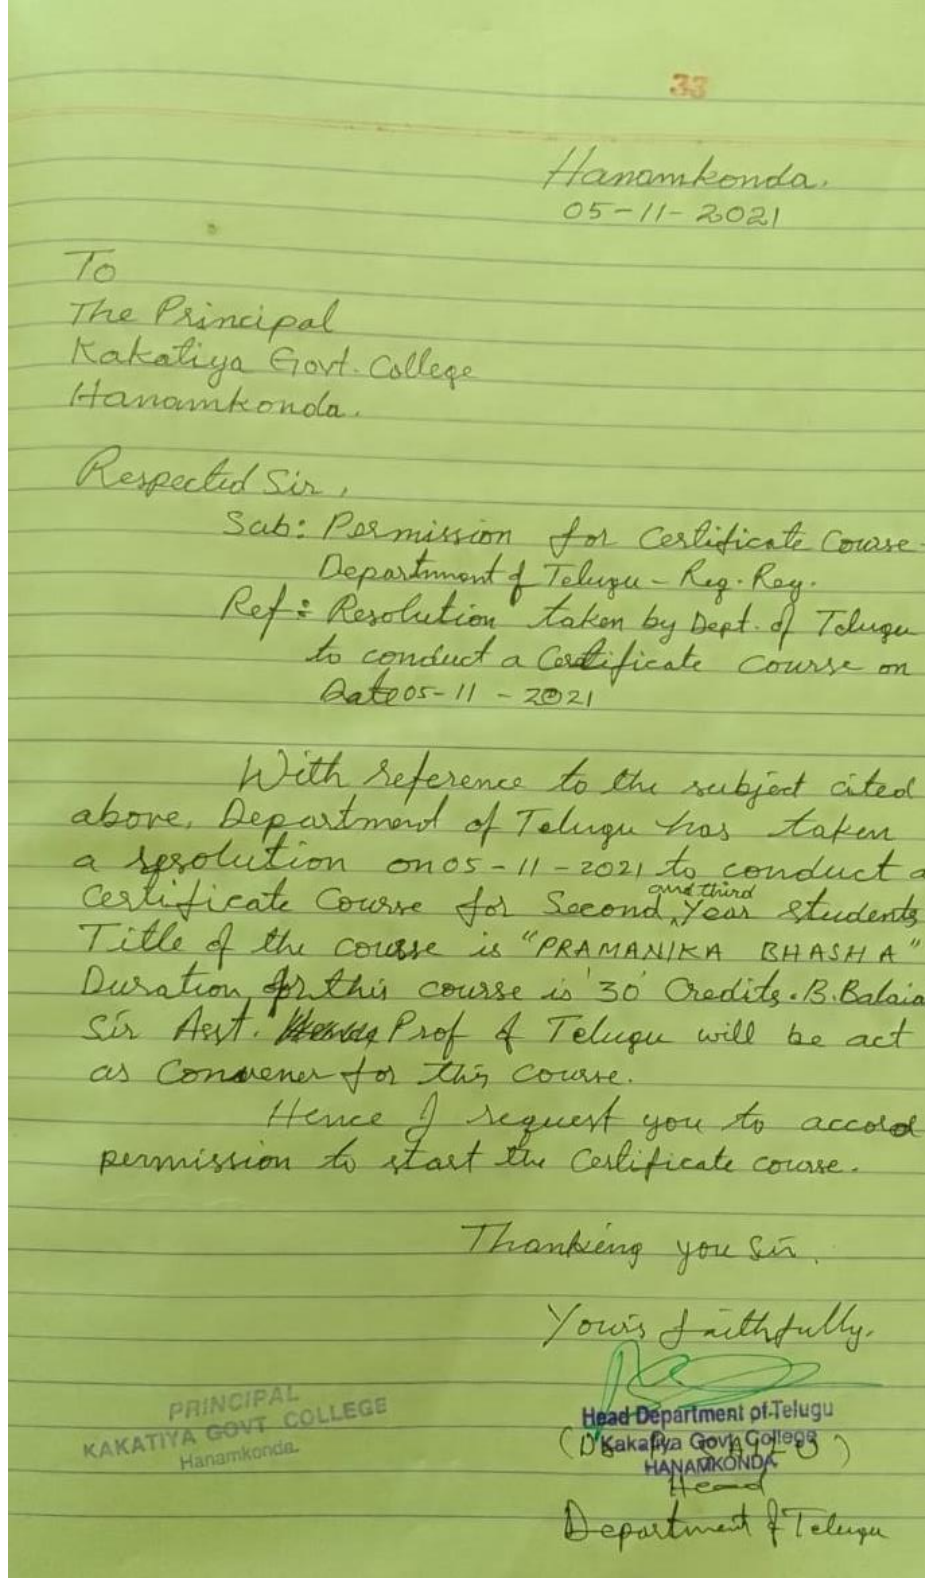 33
Hanamkonda.
05-11-2021
To
The Principal
Kakatiya Govt. College
Hanamkonda.
Respected Sir,
Sub: Permission for Certificate Course-
Department of Telugu - Reg. Reg.
Ref: Resolution taken by Dept. of Telugu
to conduct a Certificate Course on
Date 05-11-2021
With reference to the subject cited
above, Department of Telugu has taken
a resolution on 05-11-2021 to conduct a
and third
Certificate Course for Second Year students
Title of the course is "PRAMANIKA BHASHA"
Duration for this course is '30' Credits. B. Balaia
Sir Asst. Prof of Telugu will be act
as Convener for this course.
Hence I request you to accord
permission to start the Certificate course.
Thanking you Sir.
Yours faithfully.
PRINCIPAL
KAKATIYA GOVT COLLEGE
Hanamkonda.
Head Department of Telugu
Kakatiya Govt College
HANAMKONDA
Head
Department of Telugu